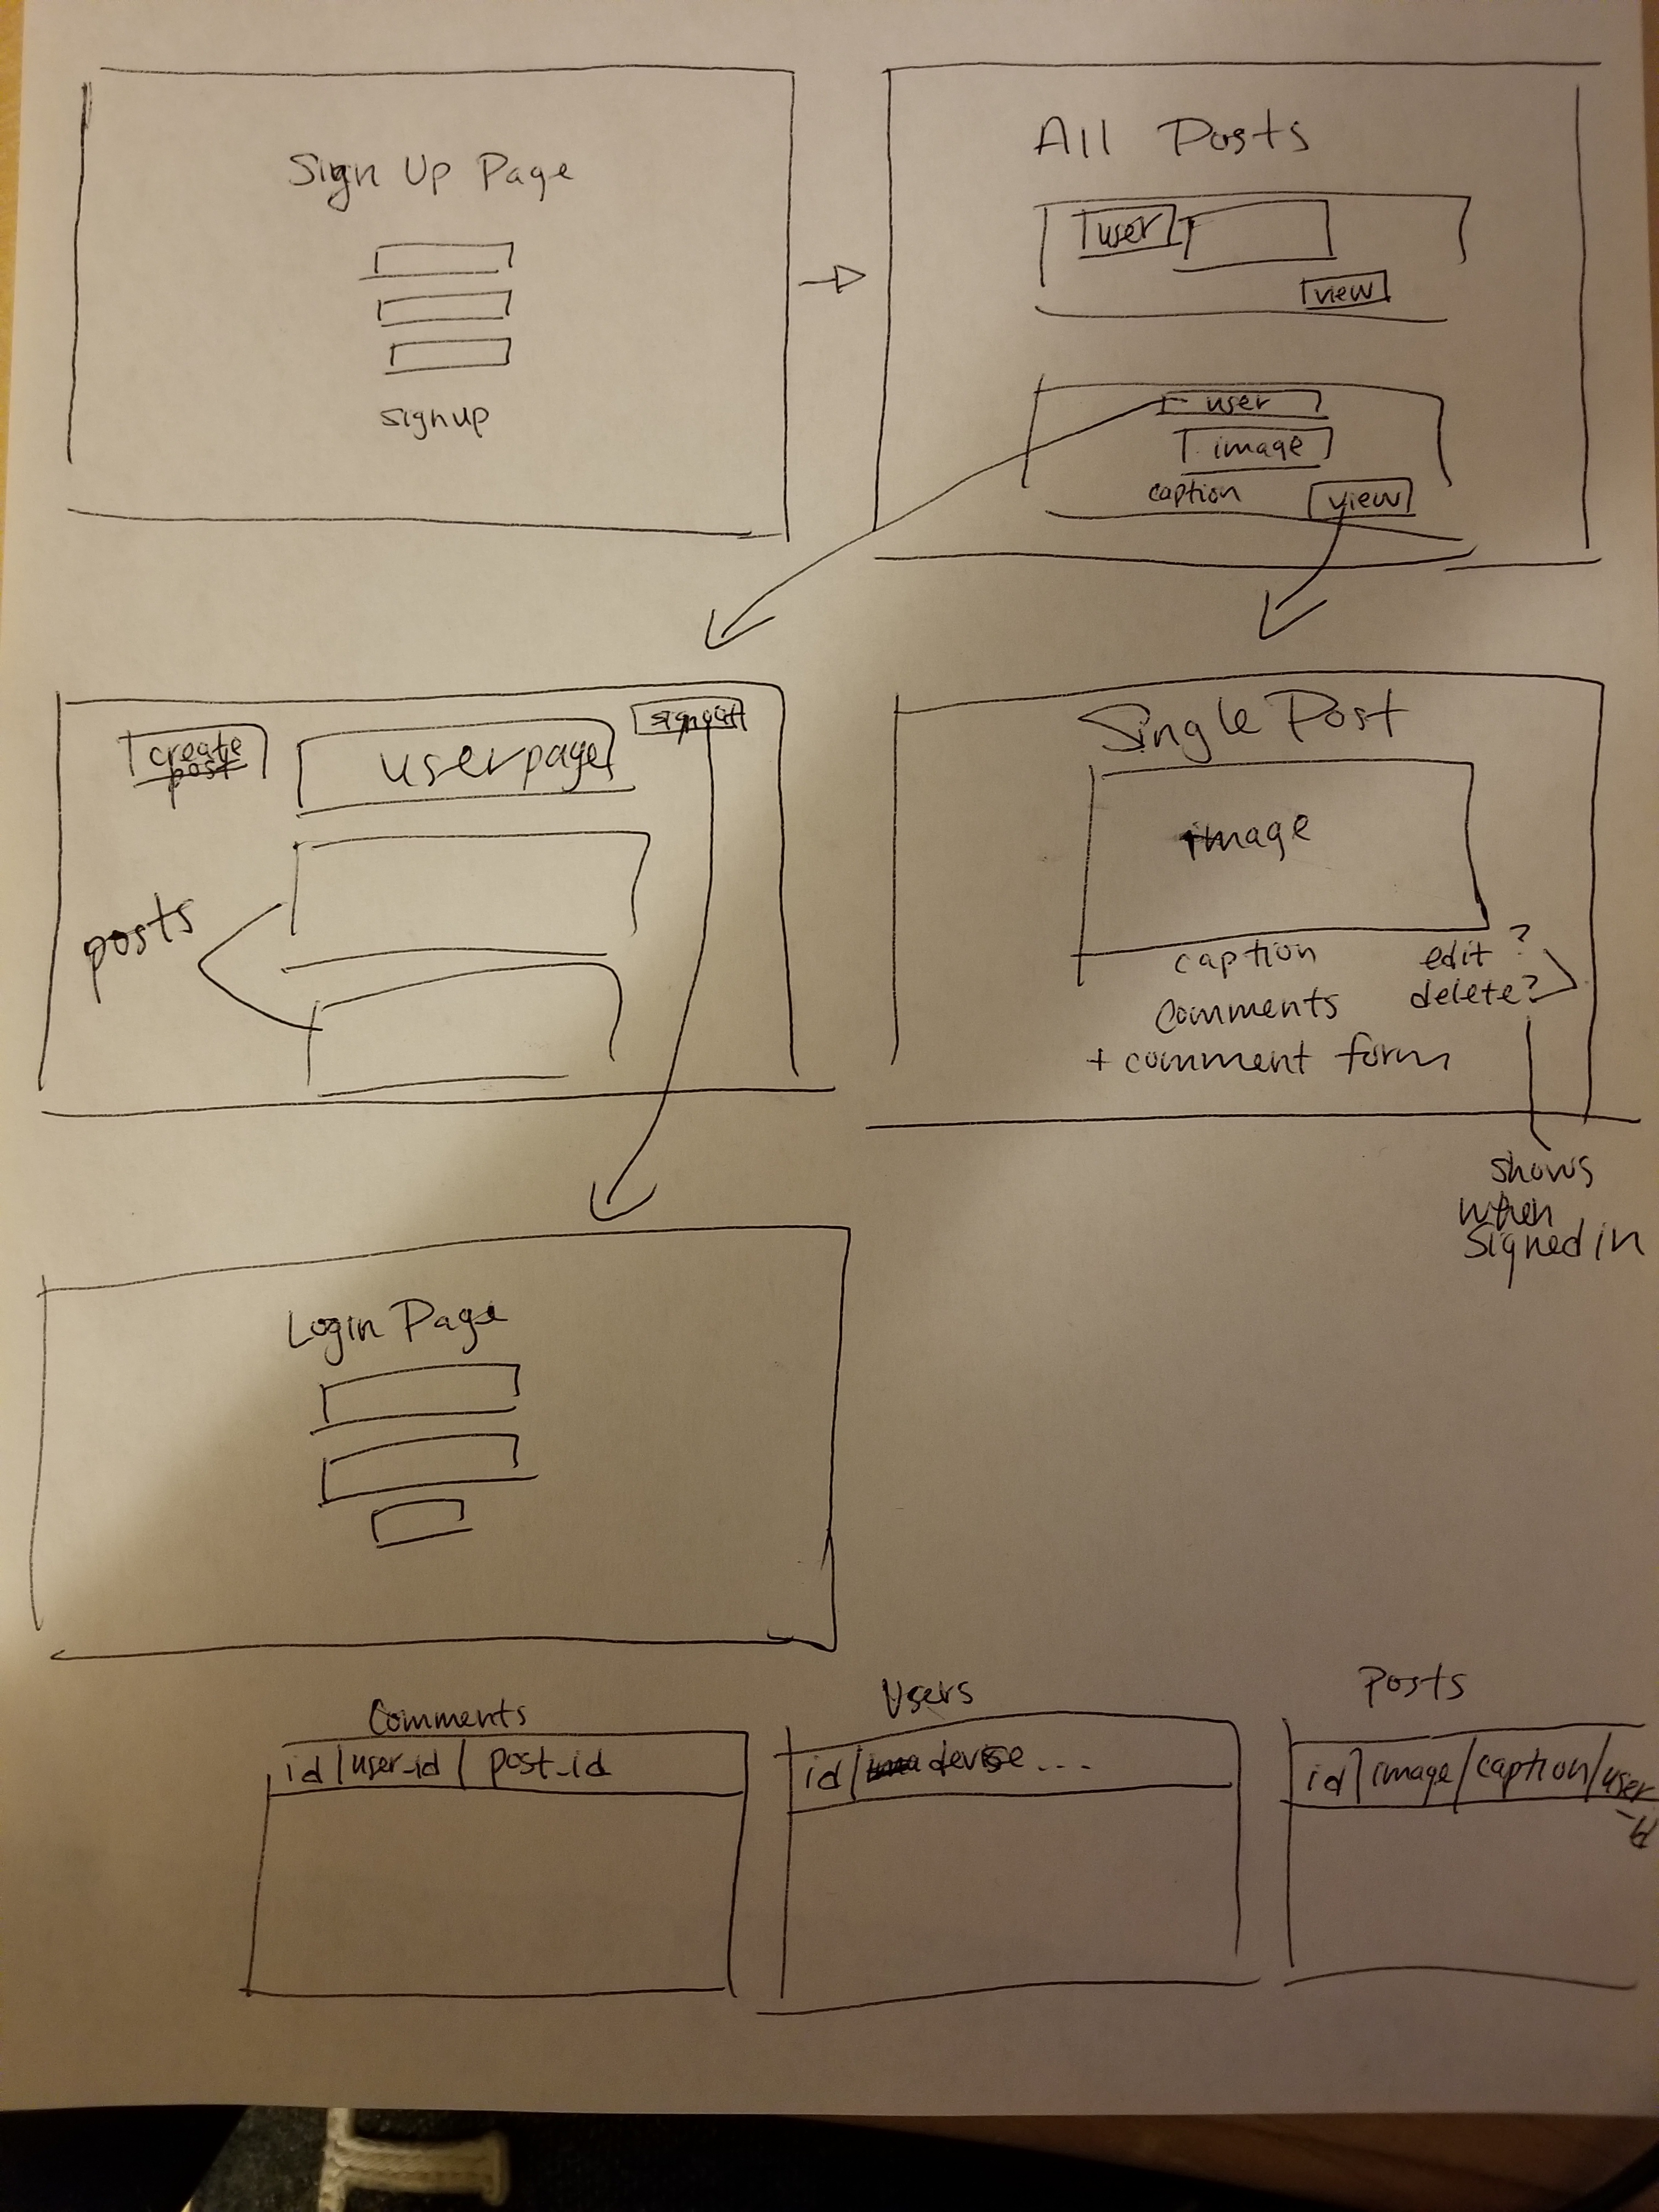 Sign Up Page
signup
All Posts
user
view
user
image
caption
view
create
post
userpage
signout
posts
Single Post
image
caption
edit ?
delete?
Comments
+ comment form
shows
when
Signed in
Login Page
Comments
id | user_id | post_id
Users
id | devise ...
Posts
id | image / caption / user
_id